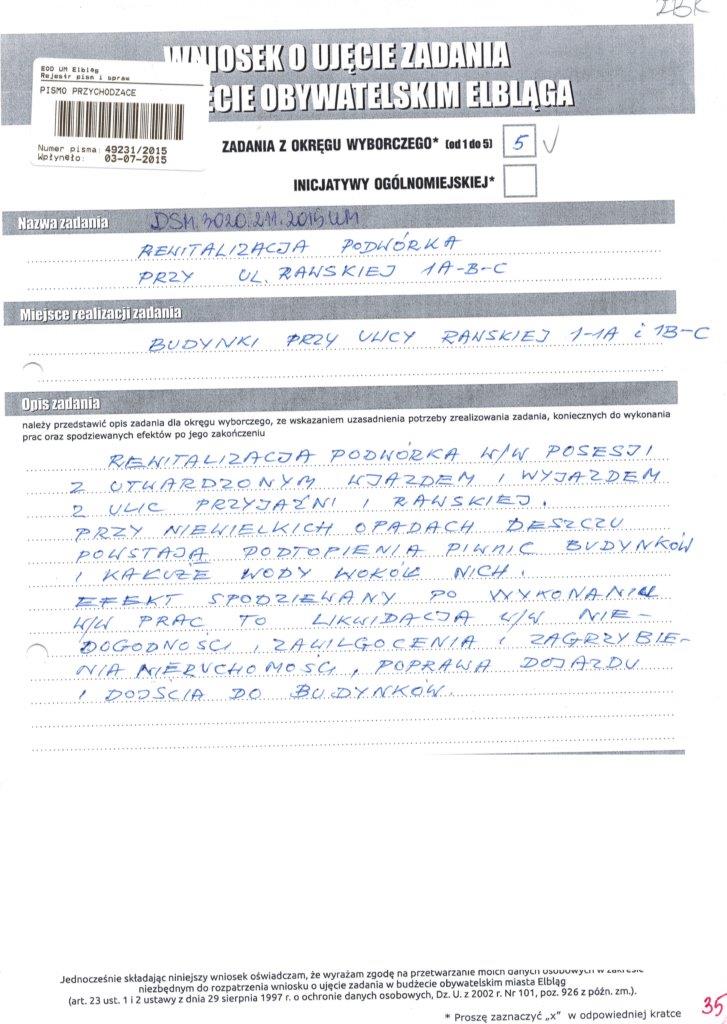 ZBK
WNIOSEK O UJĘCIE ZADANIA
ĘCIE OBYWATELSKIM ELBLĄGA
EOD UM Elbląg
Rejestr pism i spraw
PISMO PRZYCHODZĄCE
Numer pisma: 49231/2015
Wpłynęło: 03-07-2015
ZADANIA Z OKRĘGU WYBORCZEGO* (od 1 do 5) 5
INICJATYWY OGÓLNOMIEJSKIEJ*
Nazwa zadania DSM.3020.211.2015.UM
REWITALIZACJA PODWÓRKA
PRZY UL. RAWSKIEJ 1A-B-C
Miejsce realizacji zadania
BUDYNKI PRZY ULICY RAWSKIEJ 1-1A i 1B-C
Opis zadania
należy przedstawić opis zadania dla okręgu wyborczego, ze wskazaniem uzasadnienia potrzeby zrealizowania zadania, koniecznych do wykonania
prac oraz spodziewanych efektów po jego zakończeniu
REWITALIZACJA PODWÓRKA W/W POSESJI
Z UTWARDZONYM WJAZDEM I WYJAZDEM
Z ULIC PRZYJAŹNI I RAWSKIEJ.
PRZY NIEWIELKICH OPADACH DESZCZU
POWSTAJĄ PODTOPIENIA PIWNIC BUDYNKÓW
I KAŁUŻE WODY WOKÓŁ NICH.
EFEKT SPODZIEWANY PO WYKONANIU
W/W PRAC TO LIKWIDACJA W/W NIE-
DOGODNOŚCI, ZAWILGOCENIA I ZAGRZYBIE-
NIA NIERUCHOMOŚCI, POPRAWA DOJAZDU
I DOJŚCIA DO BUDYNKÓW.
Jednocześnie składając niniejszy wniosek oświadczam, że wyrażam zgodę na przetwarzanie moich danych osobowych w zakresie
niezbędnym do rozpatrzenia wniosku o ujęcie zadania w budżecie obywatelskim miasta Elbląg
(art. 23 ust. 1 i 2 ustawy z dnia 29 sierpnia 1997 r. o ochronie danych osobowych, Dz. U. z 2002 r. Nr 101, poz. 926 z późn. zm.).
* Proszę zaznaczyć „x” w odpowiedniej kratce
35